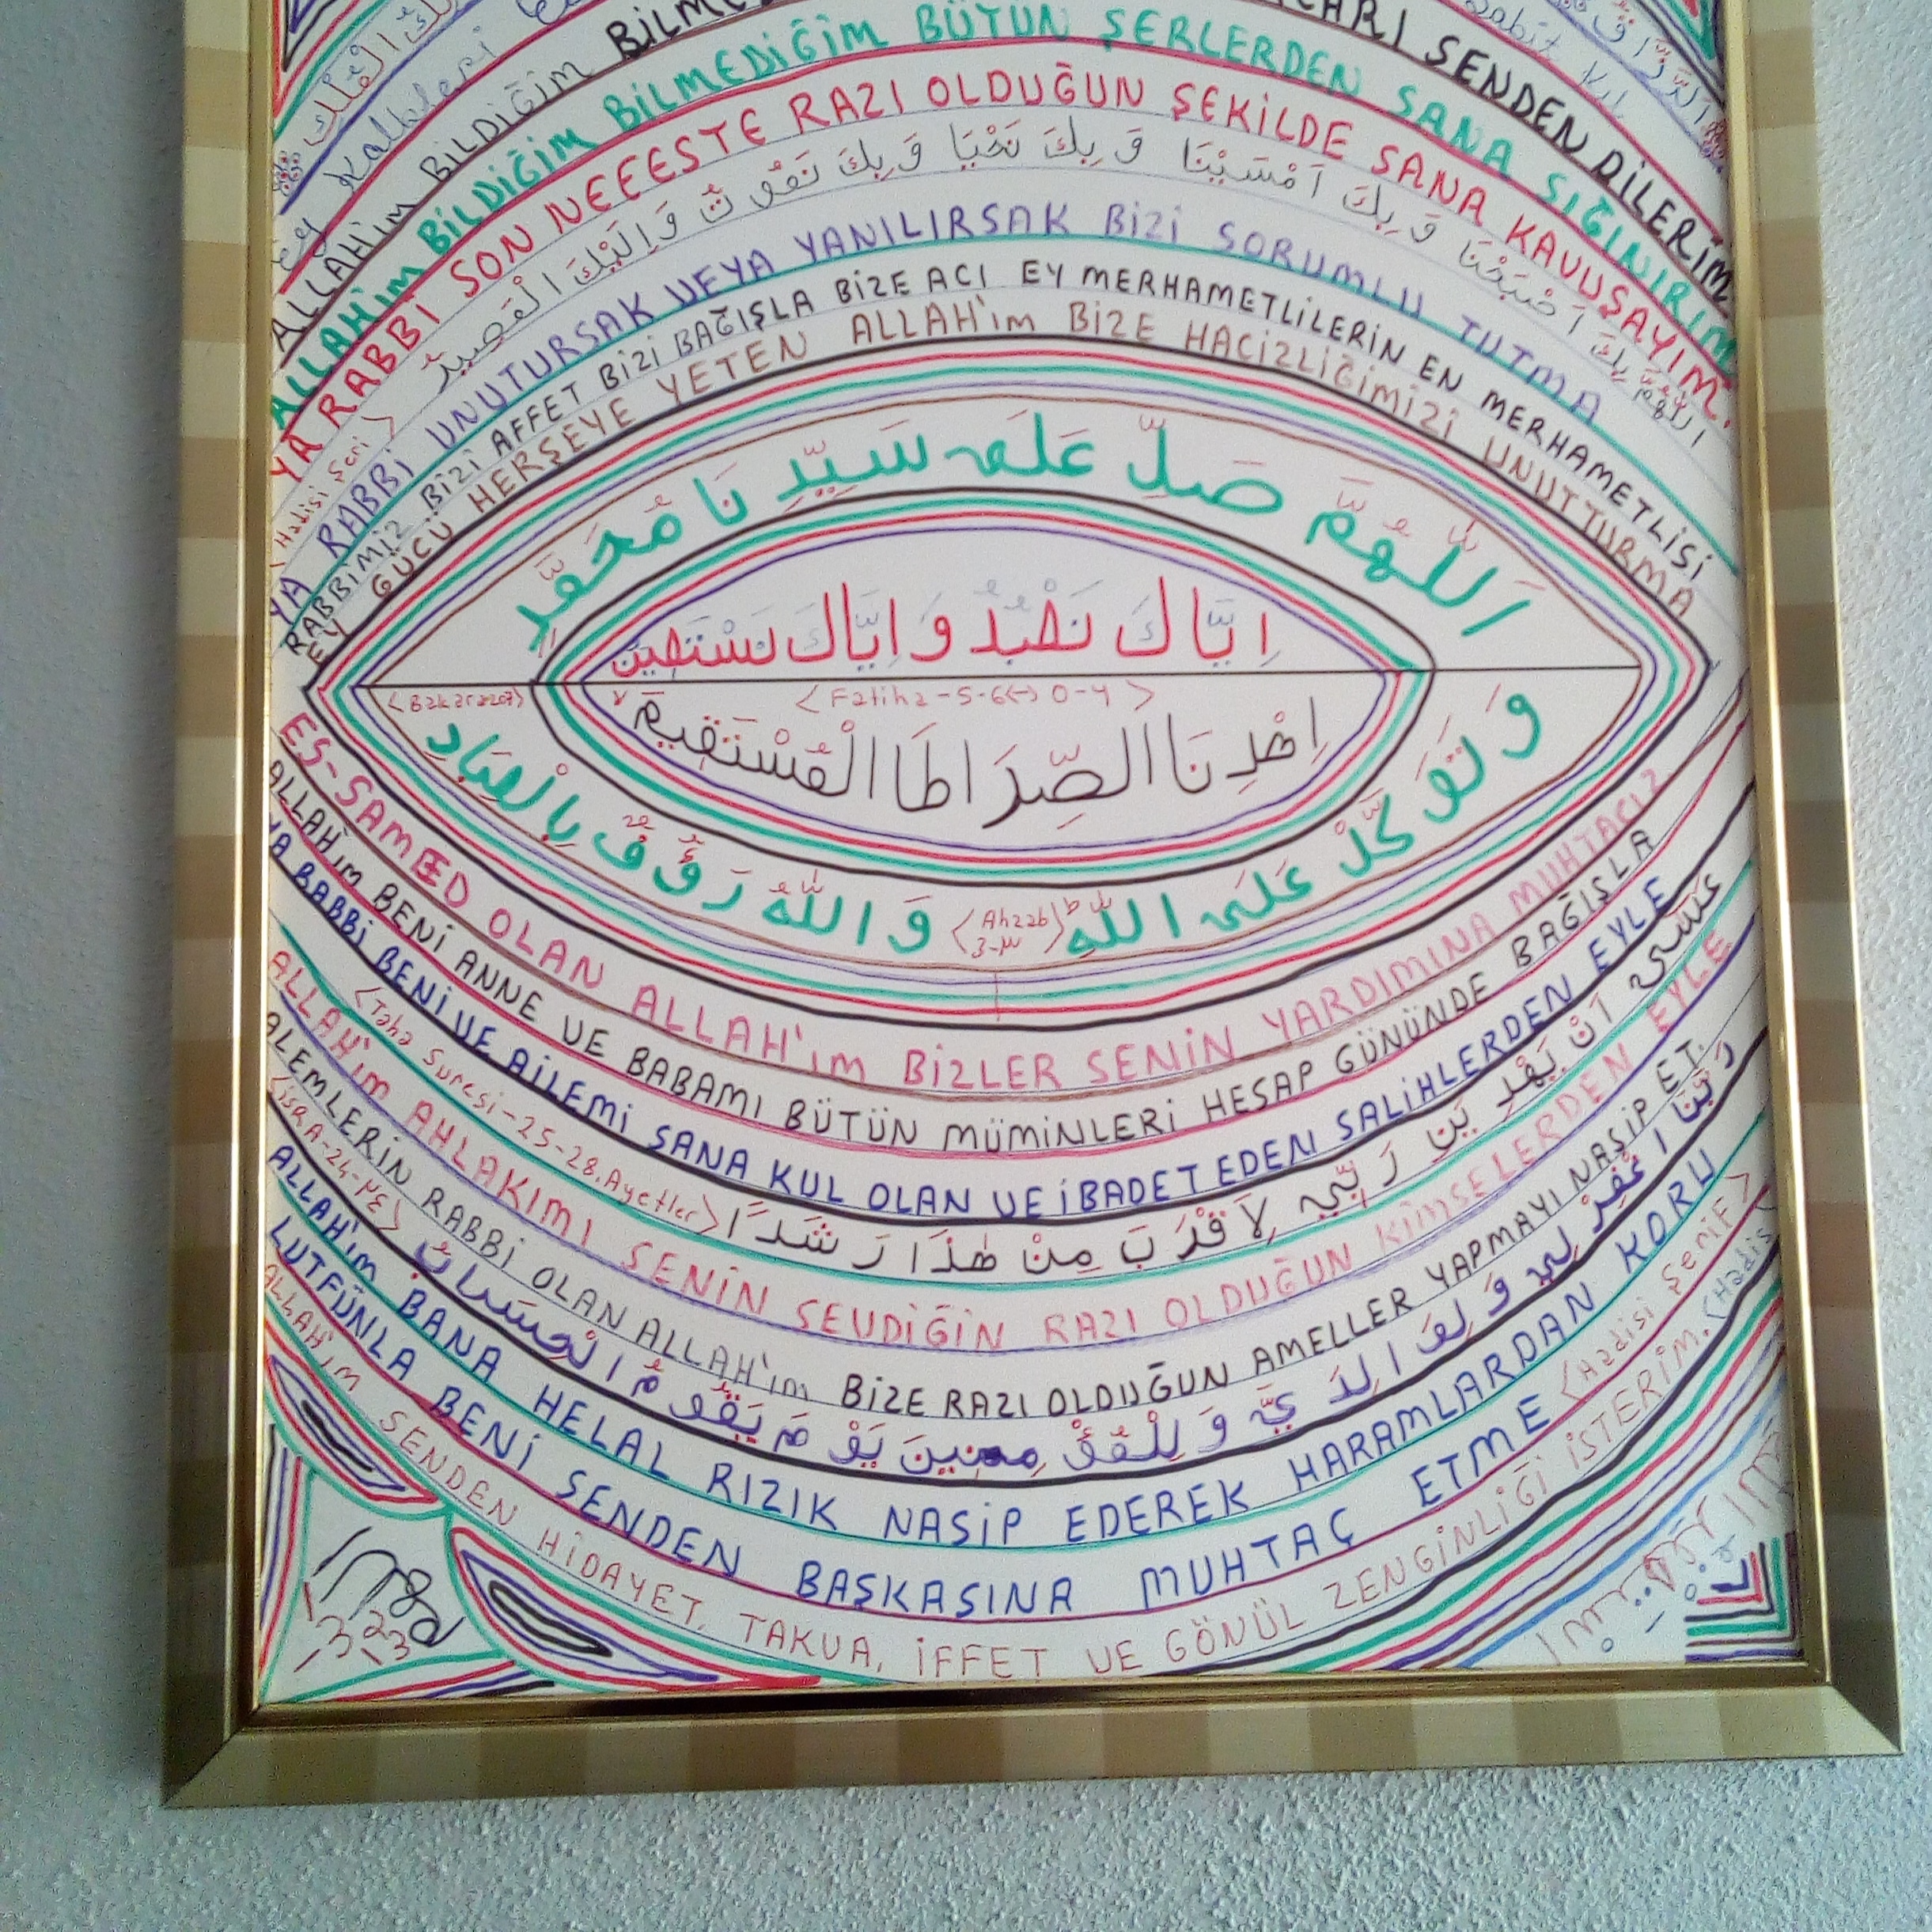 ALLAH'ım BİLDİĞİM SENDEN DİLERİM
ALLAH'ım BİLDİĞİM BİLMEDİĞİM BÜTÜN ŞERLERDEN SANA SIĞINIRIM
YA RABBİ SON NEFESTE RAZI OLDUĞUN ŞEKİLDE SANA KAVUŞAYIM.
اَللّٰهُمَّ بِكَ اَصْبَحْنَا وَ بِكَ اَمْسَيْنَا وَ بِكَ نَحْيَا وَ بِكَ نَمُوتُ وَاِلَيْكَ الْمَصِيرُ
YA RABBİ UNUTURSAK VEYA YANILIRSAK BİZİ SORUMLU TUTMA
RABBİMİZ BİZİ AFFET BİZİ BAĞIŞLA BİZE ACI EY MERHAMETLİLERİN EN MERHAMETLİSİ
EY GÜCÜ HERŞEYE YETEN ALLAH'ım BİZE HACİZLİĞİMİZİ UNUTTURMA
اَللّٰهُمَّ صَلِّ عَلَى سَيِّدِنَا مُحَمَّدٍ
اِيَّاكَ نَعْبُدُ وَ اِيَّاكَ نَسْتَعِينُ
<Bakara 207> <Fatiha-5-6
اِهْدِنَا الصِّرَاطَا الْمُسْتَقِيمَ
وَ تَوَكَّلْ عَلَى اللّٰهِ <Ahzab 3-٣> وَ اللّٰهُ رَؤُفٌ بِالْعِبَادِ
ES-SAMED OLAN ALLAH'ım BİZLER SENİN YARDIMINA MUHTACIZ.
ALLAH'ım BENİ ANNE VE BABAMI BÜTÜN MÜMİNLERİ HESAP GÜNÜNDE BAĞIŞLA
YA RABBİ BENİ VE AİLEMİ SANA KUL OLAN VE İBADET EDEN SALİHLERDEN EYLE
عَسٰى اَنْ يَهْدِيَنِ رَبِّي لِاَقْرَبَ مِنْ هٰذَا رَشَدًا <Taha Suresi-25-28.Ayetler>
ALLAH'ım AHLAKIMI SENİN SEVDİĞİN RAZI OLDUĞUN KİMSELERDEN EYLE
ALEMLERİN RABBİ OLAN ALLAH'ım BİZE RAZI OLDUĞUN AMELLER YAPMAYI NASİP ET.
رَبَّنَا اغْفِرْ لِي وَ لِوَالِدَيَّ وَ لِلْمُؤْمِنِينَ يَوْمَ يَقُومُ الْحِسَابُ <İSRA-24-٢٤>
ALLAH'ım BANA HELAL RIZIK NASİP EDEREK HARAMLARDAN KORU
LUTFÜNLA BENİ SENDEN BAŞKASINA MUHTAÇ ETME <Hadisi Şerif>
ALLAH'ım SENDEN HİDAYET, TAKVA, İFFET VE GÖNÜL ZENGİNLİĞİ İSTERİM. <Hadis